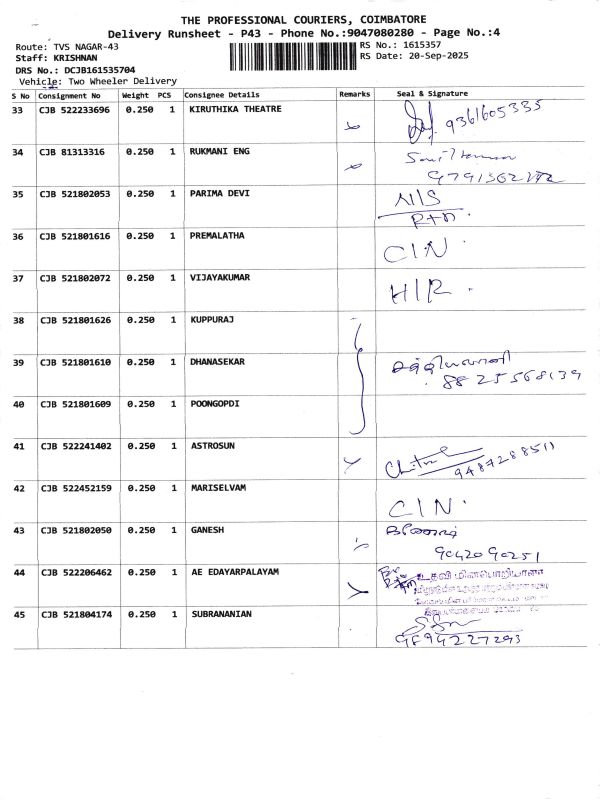 THE PROFESSIONAL COURIERS, COIMBATORE
Delivery Runsheet - P43 - Phone No.:9047080280 - Page No.:4
Route: TVS NAGAR-43 RS No.: 1615357
Staff: KRISHNAN RS Date: 20-Sep-2025
DRS No.: DCJB161535704
Vehicle: Two Wheeler Delivery
S No Consignment No Weight PCS Consignee Details Remarks Seal & Signature
33 CJB 522233696 0.250 1 KIRUTHIKA THEATRE 9361605335
34 CJB 81313316 0.250 1 RUKMANI ENG
35 CJB 521802053 0.250 1 PARIMA DEVI N/S
RTN
36 CJB 521801616 0.250 1 PREMALATHA C/N.
37 CJB 521802072 0.250 1 VIJAYAKUMAR
38 CJB 521801626 0.250 1 KUPPURAJ
39 CJB 521801610 0.250 1 DHANASEKAR
8825568139
40 CJB 521801609 0.250 1 POONGOPDI
41 CJB 522241402 0.250 1 ASTROSUN
9487288511
42 CJB 522452159 0.250 1 MARISELVAM C/N.
43 CJB 521802050 0.250 1 GANESH
9042090251
44 CJB 522206462 0.250 1 AE EDAYARPALAYAM உதவி மின்பொறியாளர்
45 CJB 521804174 0.250 1 SUBRANANIAN
9894227293